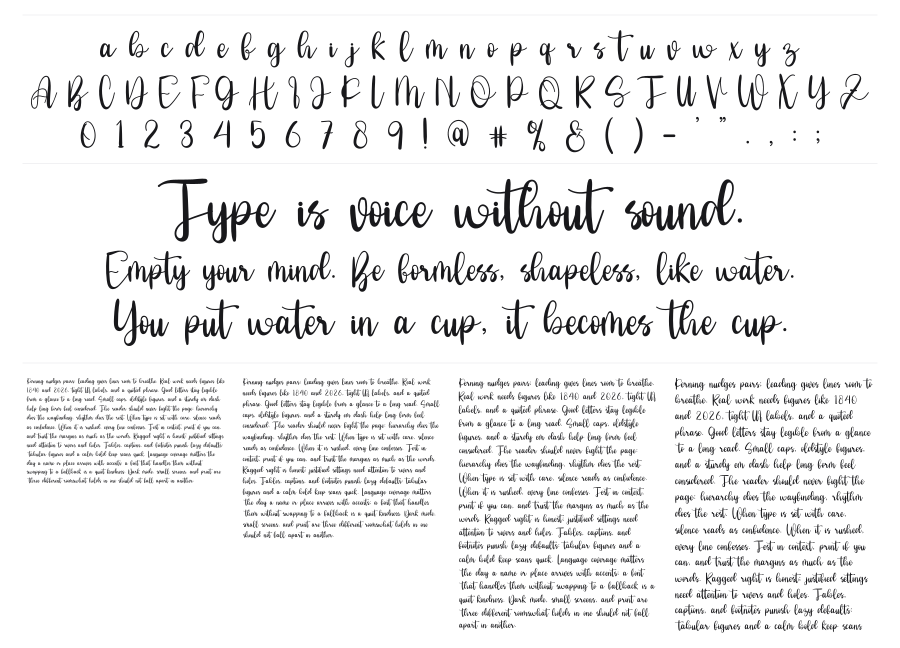 a b c d e f g h i j k l m n o p q r s t u v w x y z
A B C D E F G H I J K L M N O P Q R S T U V W X Y Z
0 1 2 3 4 5 6 7 8 9 ! @ # % & ( ) - ' " . , : ;
Type is voice without sound.
Empty your mind. Be formless, shapeless, like water.
You put water in a cup, it becomes the cup.
Kerning nudges pairs; leading gives lines room to breathe. Real work needs figures like
1840 and 2026, tight UI labels, and a quoted phrase. Good letters stay legible
from a glance to a long read. Small caps, oldstyle figures, and a sturdy em dash
help long form feel considered. The reader should never fight the page; hierarchy
does the wayfinding, rhythm does the rest. When type is set with care, silence reads
as confidence. When it is rushed, every line confesses. Test in context, print if you can,
and trust the margins as much as the words. Ragged right is honest; justified settings
need attention to rivers and holes. Tables, captions, and footnotes punish lazy defaults;
tabular figures and a calm bold keep scans quick. Language coverage matters the
day a name or place arrives with accents; a font that handles them without
swapping to a fallback is a quiet kindness. Dark mode, small screens, and print are
three different rooms; what holds in one should not fall apart in another.
Kerning nudges pairs; leading gives lines room to breathe. Real work
needs figures like 1840 and 2026, tight UI labels, and a quoted
phrase. Good letters stay legible from a glance to a long read. Small
caps, oldstyle figures, and a sturdy em dash help long form feel
considered. The reader should never fight the page; hierarchy does the
wayfinding, rhythm does the rest. When type is set with care, silence
reads as confidence. When it is rushed, every line confesses. Test in
context, print if you can, and trust the margins as much as the words.
Ragged right is honest; justified settings need attention to rivers and
holes. Tables, captions, and footnotes punish lazy defaults; tabular
figures and a calm bold keep scans quick. Language coverage matters
the day a name or place arrives with accents; a font that handles
them without swapping to a fallback is a quiet kindness. Dark mode,
small screens, and print are three different rooms; what holds in one
should not fall apart in another.
Kerning nudges pairs; leading gives lines room to breathe.
Real work needs figures like 1840 and 2026, tight UI
labels, and a quoted phrase. Good letters stay legible
from a glance to a long read. Small caps, oldstyle
figures, and a sturdy em dash help long form feel
considered. The reader should never fight the page;
hierarchy does the wayfinding, rhythm does the rest.
When type is set with care, silence reads as confidence.
When it is rushed, every line confesses. Test in context,
print if you can, and trust the margins as much as the
words. Ragged right is honest; justified settings need
attention to rivers and holes. Tables, captions, and
footnotes punish lazy defaults; tabular figures and a
calm bold keep scans quick. Language coverage matters
the day a name or place arrives with accents; a font
that handles them without swapping to a fallback is a
quiet kindness. Dark mode, small screens, and print are
three different rooms; what holds in one should not fall
apart in another.
Kerning nudges pairs; leading gives lines room to
breathe. Real work needs figures like 1840
and 2026, tight UI labels, and a quoted
phrase. Good letters stay legible from a glance
to a long read. Small caps, oldstyle figures,
and a sturdy em dash help long form feel
considered. The reader should never fight the
page; hierarchy does the wayfinding, rhythm
does the rest. When type is set with care,
silence reads as confidence. When it is rushed,
every line confesses. Test in context, print if you
can, and trust the margins as much as the
words. Ragged right is honest; justified settings
need attention to rivers and holes. Tables,
captions, and footnotes punish lazy defaults;
tabular figures and a calm bold keep scans